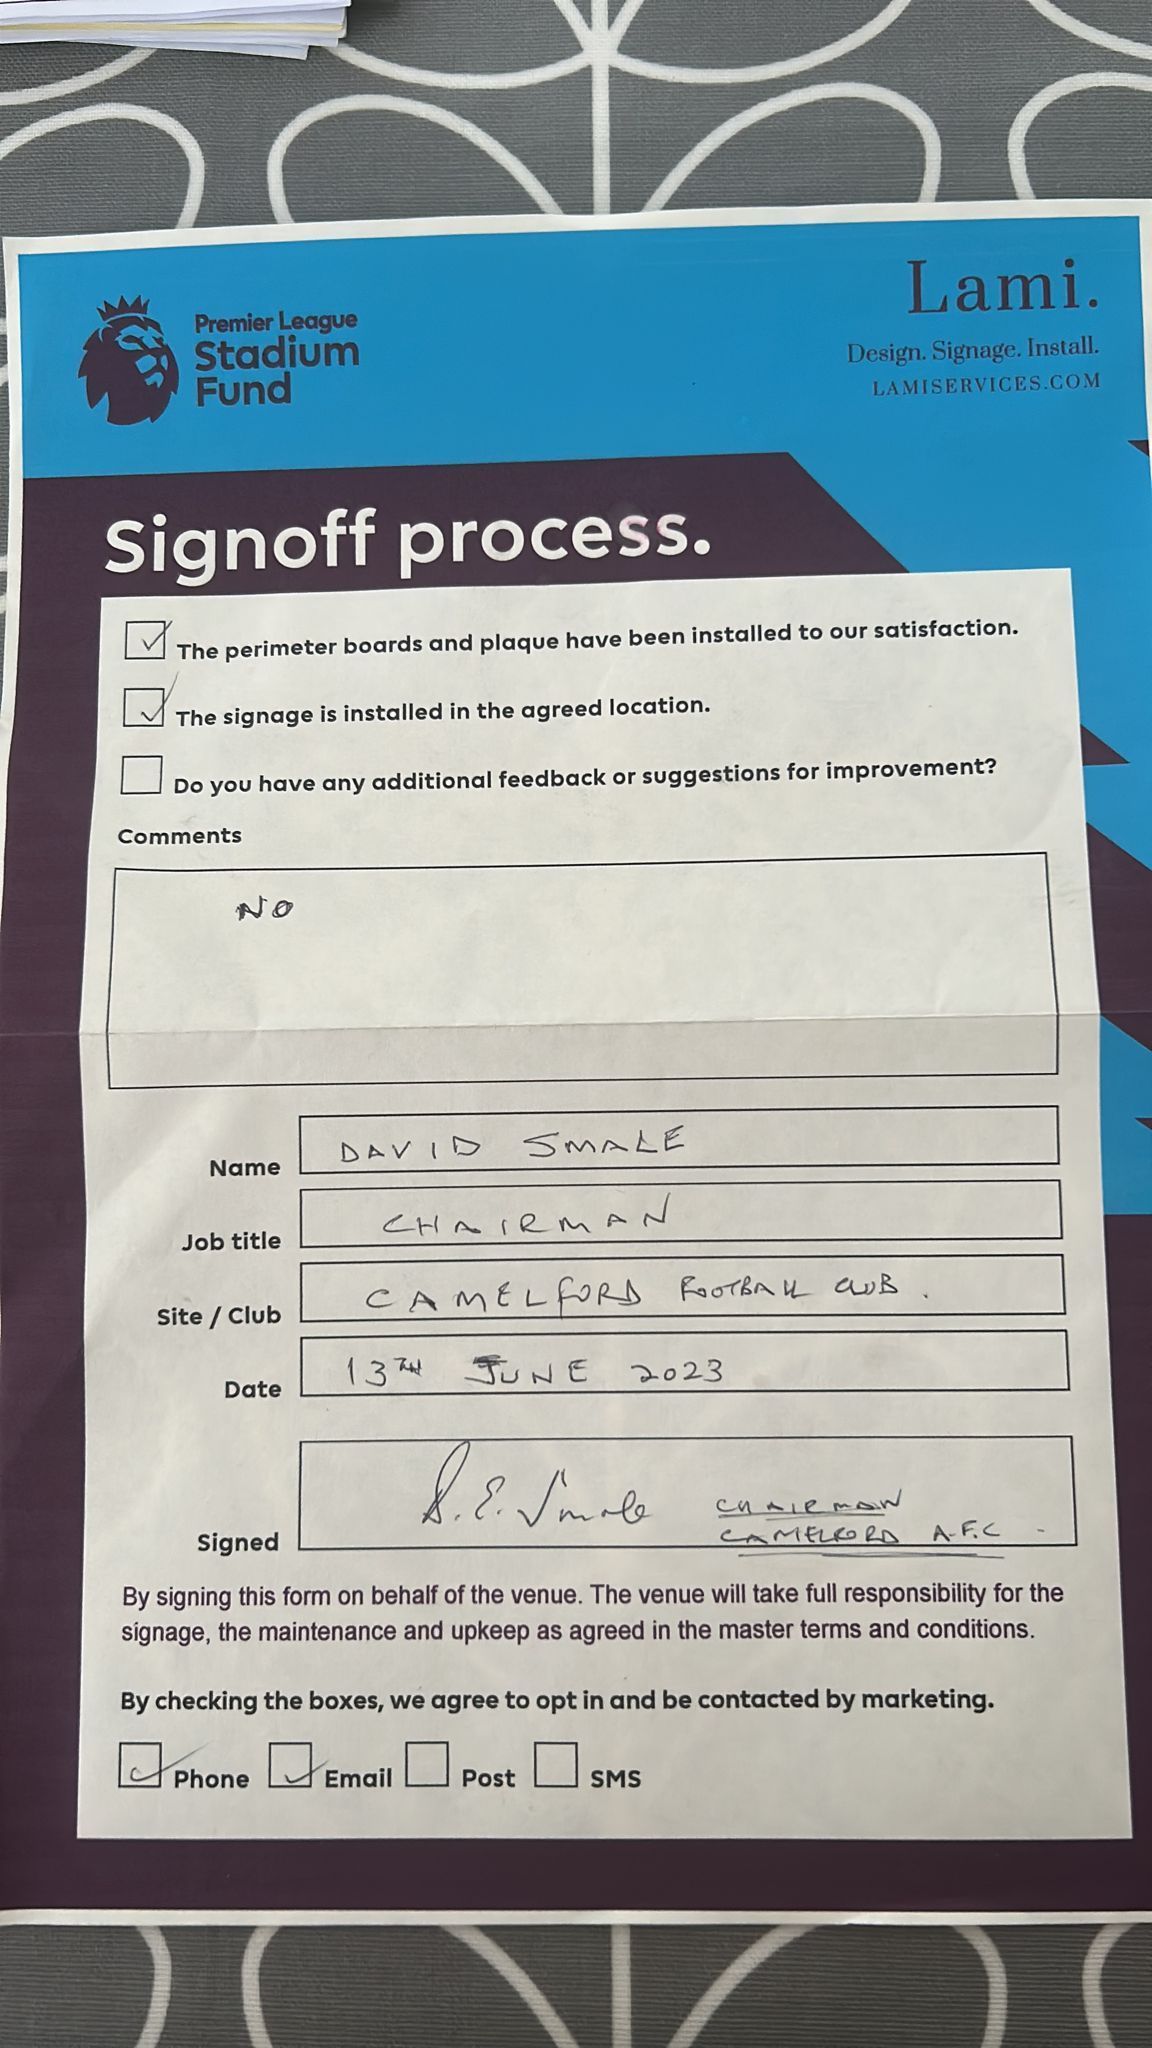 Premier League
Stadium
Fund
Lami.
Design. Signage. Install.
LAMISERVICES.COM
Signoff process.
The perimeter boards and plaque have been installed to our satisfaction.
The signage is installed in the agreed location.
Do you have any additional feedback or suggestions for improvement?
Comments
NO
Name DAVID SMALE
Job title CHAIRMAN
Site / Club CAMELFORD FOOTBALL CLUB.
Date 13TH JUNE 2023
Signed D. E. Smale CHAIRMAN
CAMELFORD A.F.C
By signing this form on behalf of the venue. The venue will take full responsibility for the
signage, the maintenance and upkeep as agreed in the master terms and conditions.
By checking the boxes, we agree to opt in and be contacted by marketing.
Phone Email Post SMS